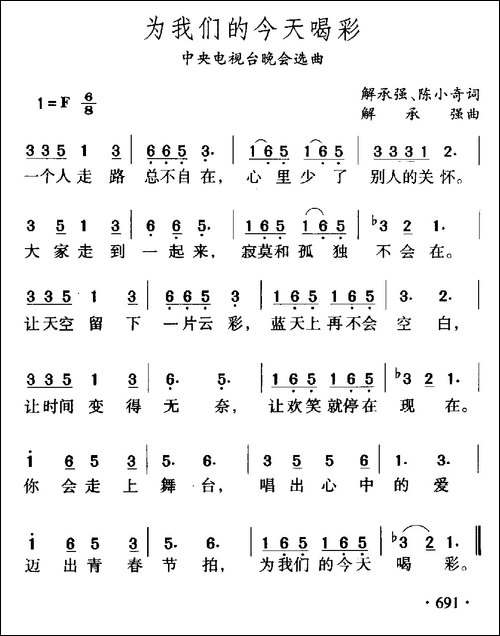 为我们的今天喝彩
中央电视台晚会选曲
1=F 6/8
解承强、陈小奇词
解 承 强曲
3 3 5 1 3 | 6 6 5 3. | 1 6 5 1 6 5 | 3 3 3 1 2. |
一个人走路 总不自在， 心里少了 别人的关怀。
3 5 1 3 | 6 6 5. | 1 6 5 1 6 5 | ♭3 2 1. |
大家走到一起来， 寂莫和孤独 不会在。
3 3 5 1 3 | 6 6 5 3 | 1 6 5 1 6 5 | 3. 2. |
让天空留下一片云彩， 蓝天上再不会空白，
3 3 5 1 3 | 6. 5. | 1 6 5 1 6 5 | ♭3 2 1. |
让时间变得无奈， 让欢笑就停在现在。
i 6 5 3 | 5. 6. | 3 5 5 6 | 1. 3. |
你会走上舞台， 唱出心中的爱
i 6 5 3 | 5. 6. | 1 6 5 1 6 5 | ♭3 2 1. |
迈出青春节拍， 为我们的今天喝彩。
· 691 ·